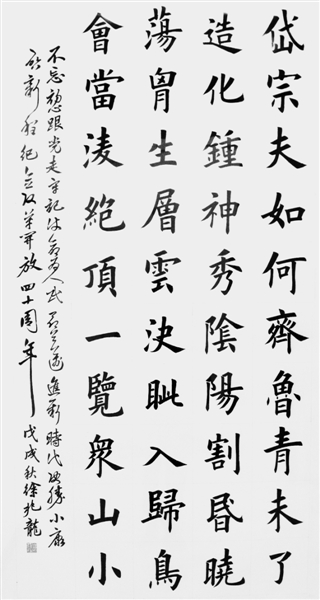 岱宗夫如何齊魯青未了
造化鍾神秀陰陽割昬曉
蕩胷生層雲決眦入歸鳥
會當淩絕頂一覽衆山小
不忘跟党走牢記使命为人民進新時代小康
新程纪念改革開放四十周年戊戌秋徐兆龍